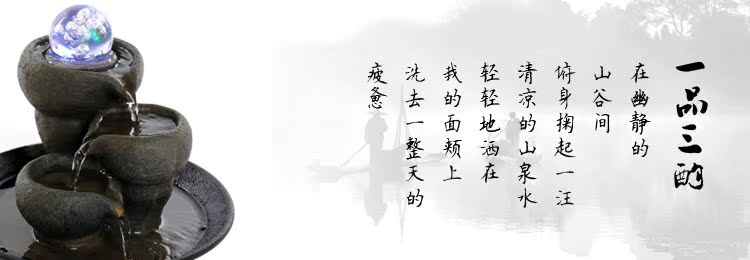 一品三酌
在幽静的
山谷间
俯身掬起一汪
清凉的山泉水
轻轻地洒在
我的面颊上
洗去一整天的
疲惫